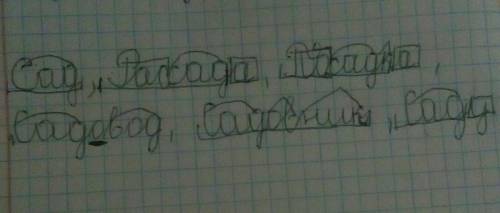 Сад, Рассада, Посадка,
Садовод, Садовник, Саду